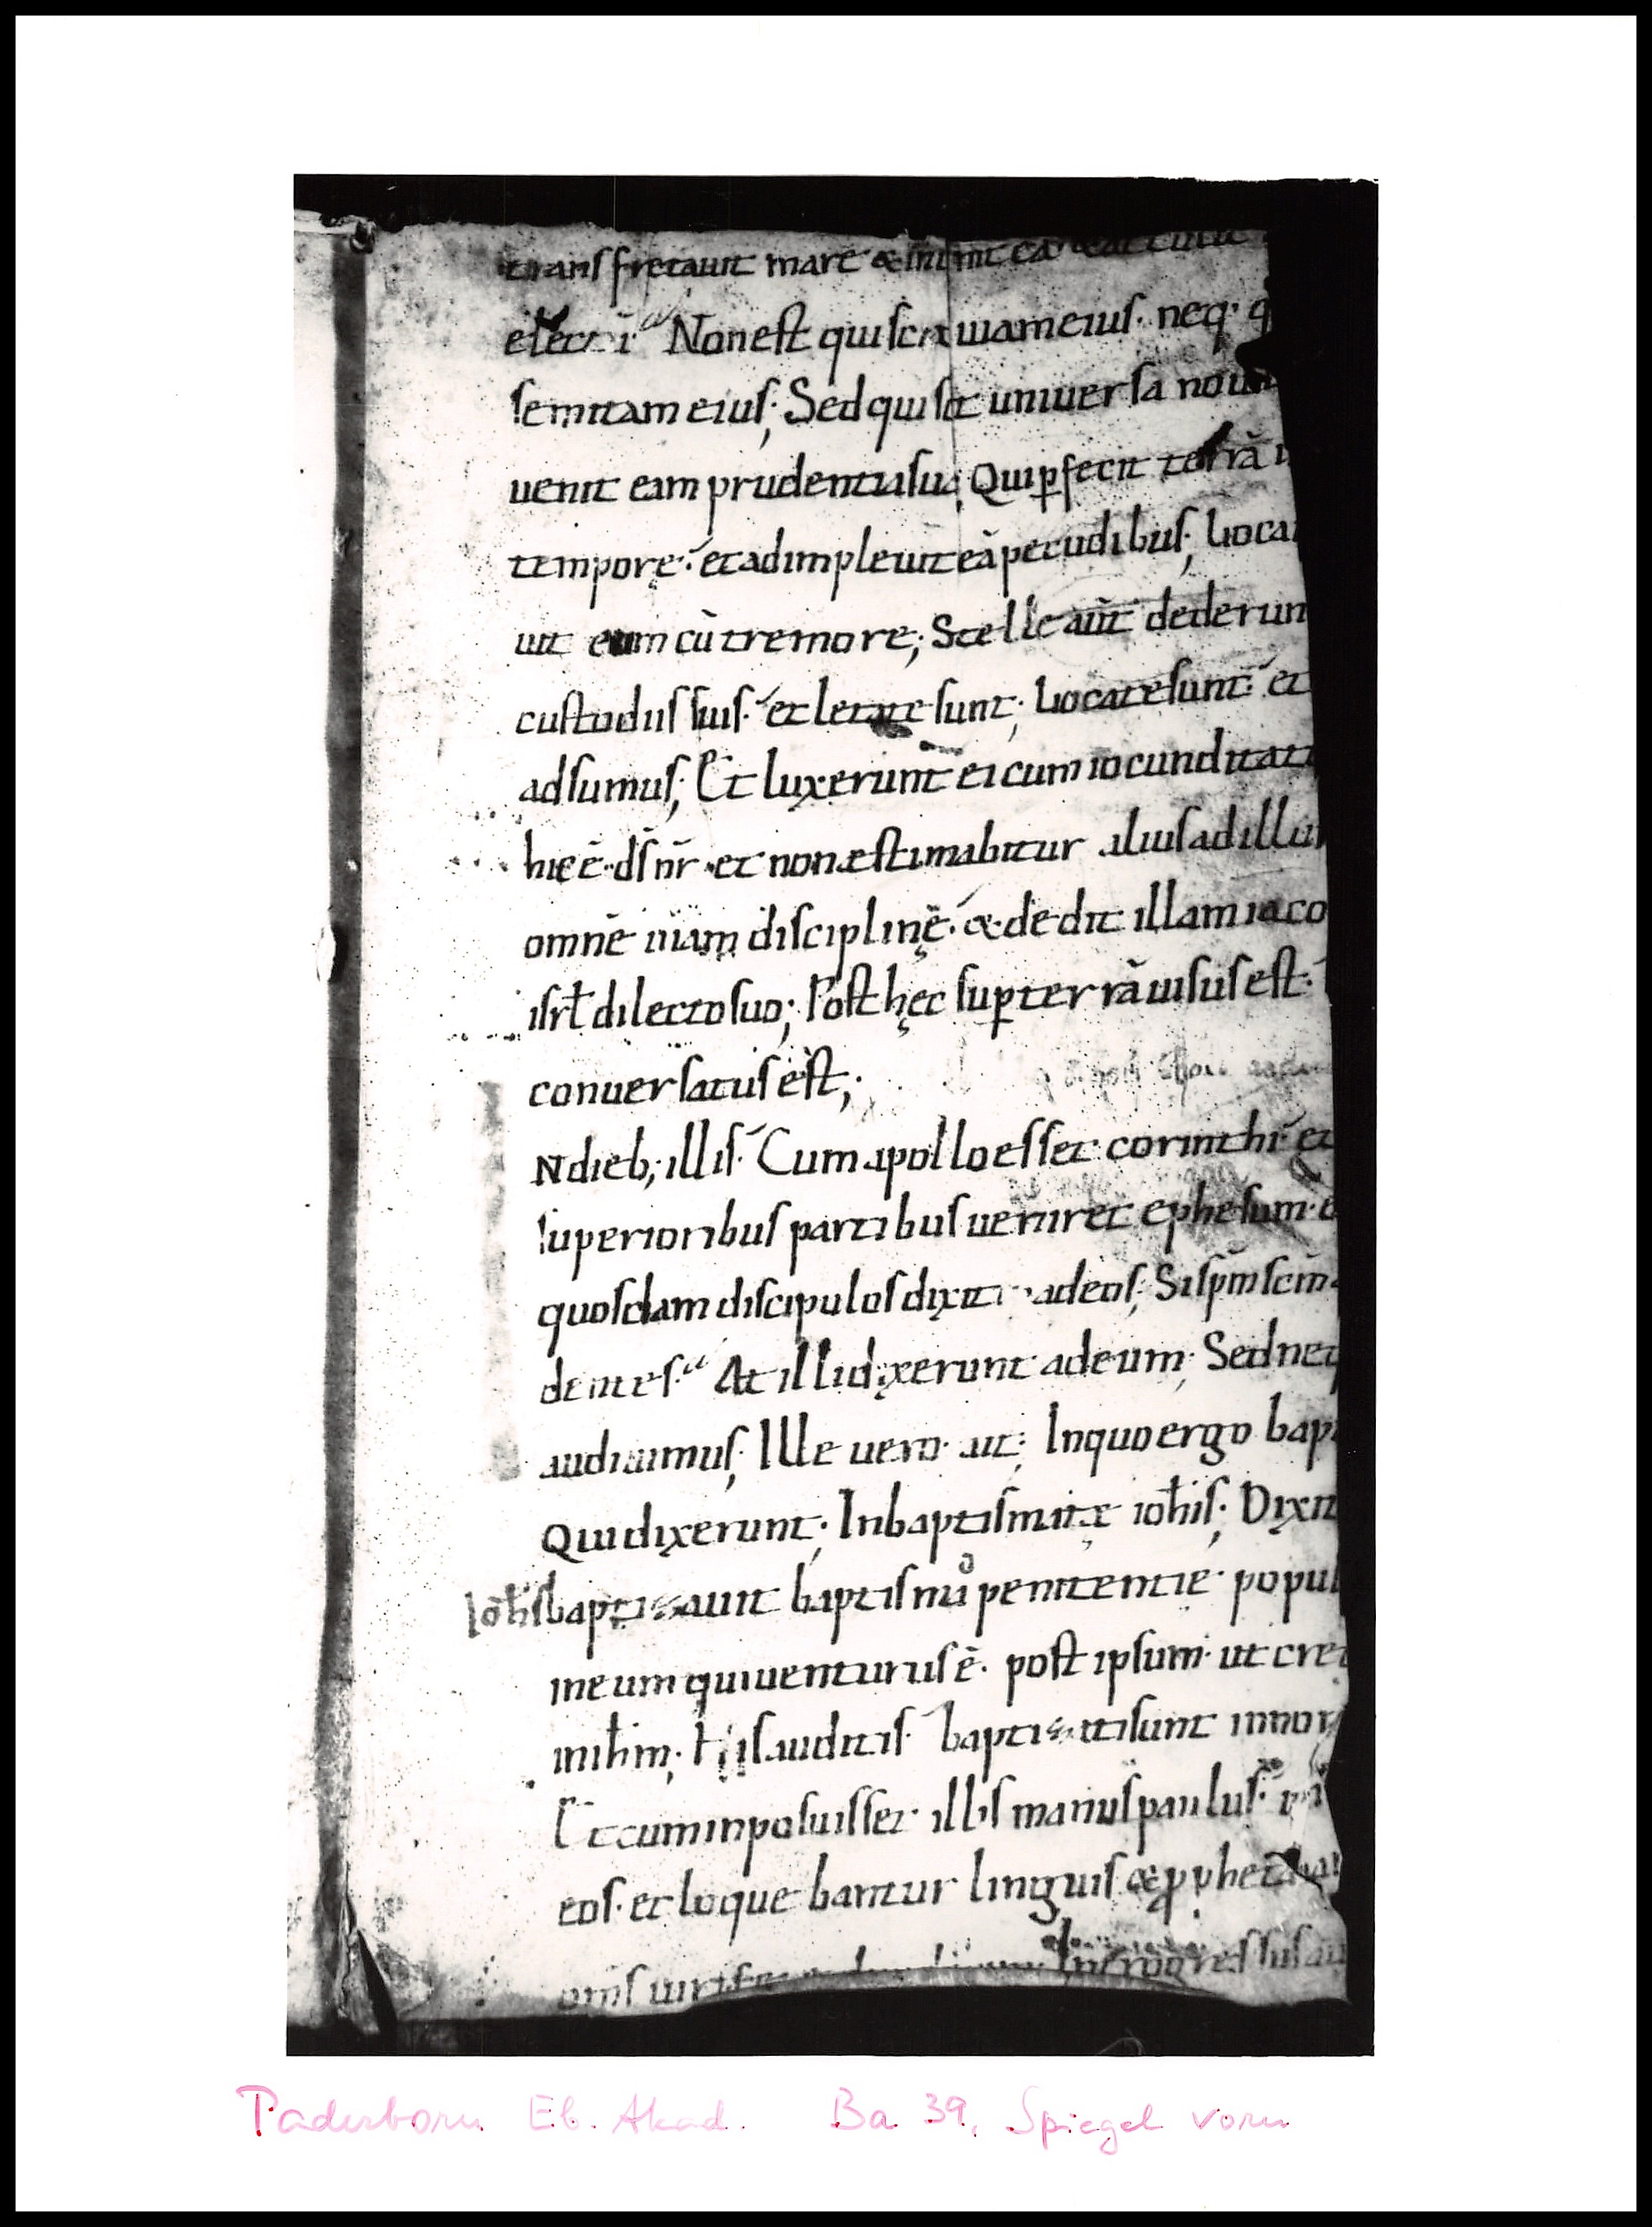 transfretauit mare & inuenit eā
electū Non est qui sciat uiam eius· neq·
semitam eius; Sed qui scit uniuersa nouit
uenit eam prudentia sua; Qui ꝑfecit terrā
tempore· et adimpleuit eā pecudibus; Uoca
uit eum cū tremore; Stelle aūt dederun
custodiis suis· et letate sunt; Uocate sunt· et
adsumus; Et luxerunt ei cum iocunditat
hic ē· ds̄ nr̄· et non estimabitur alius ad illu
omnē uiam disciplinę· & dedit illam iaco
isrł dilecto suo; Post hęc suꝑ terrā uisus est·
conuersatus est;
N dieb; illis· Cum apollo esset corinthi· et
superioribus partibus ueniret ephesum·
quosdam discipulos dixit ad eos; Si sp̄m sc̄m
dentes· At illi dixerunt ad eum; Sed neq
audiuimus; Ille uero ait; In quo ergo bap
Qui dixerunt; In baptismate ioh̄is; Dixit
Ioh̄s baptizauit baptismū penitentie· popul
in eum qui uenturus ē· post ipsum· ut cre
in ih̄m; His auditis· baptizati sunt in no
Et cum inposuisset· illis manus paulus·
eos· et loquebantur linguis & ꝓpheta
om̄s uiri Introgressus au
Paderborn Eb. Akad. Ba 39, Spiegel vorn